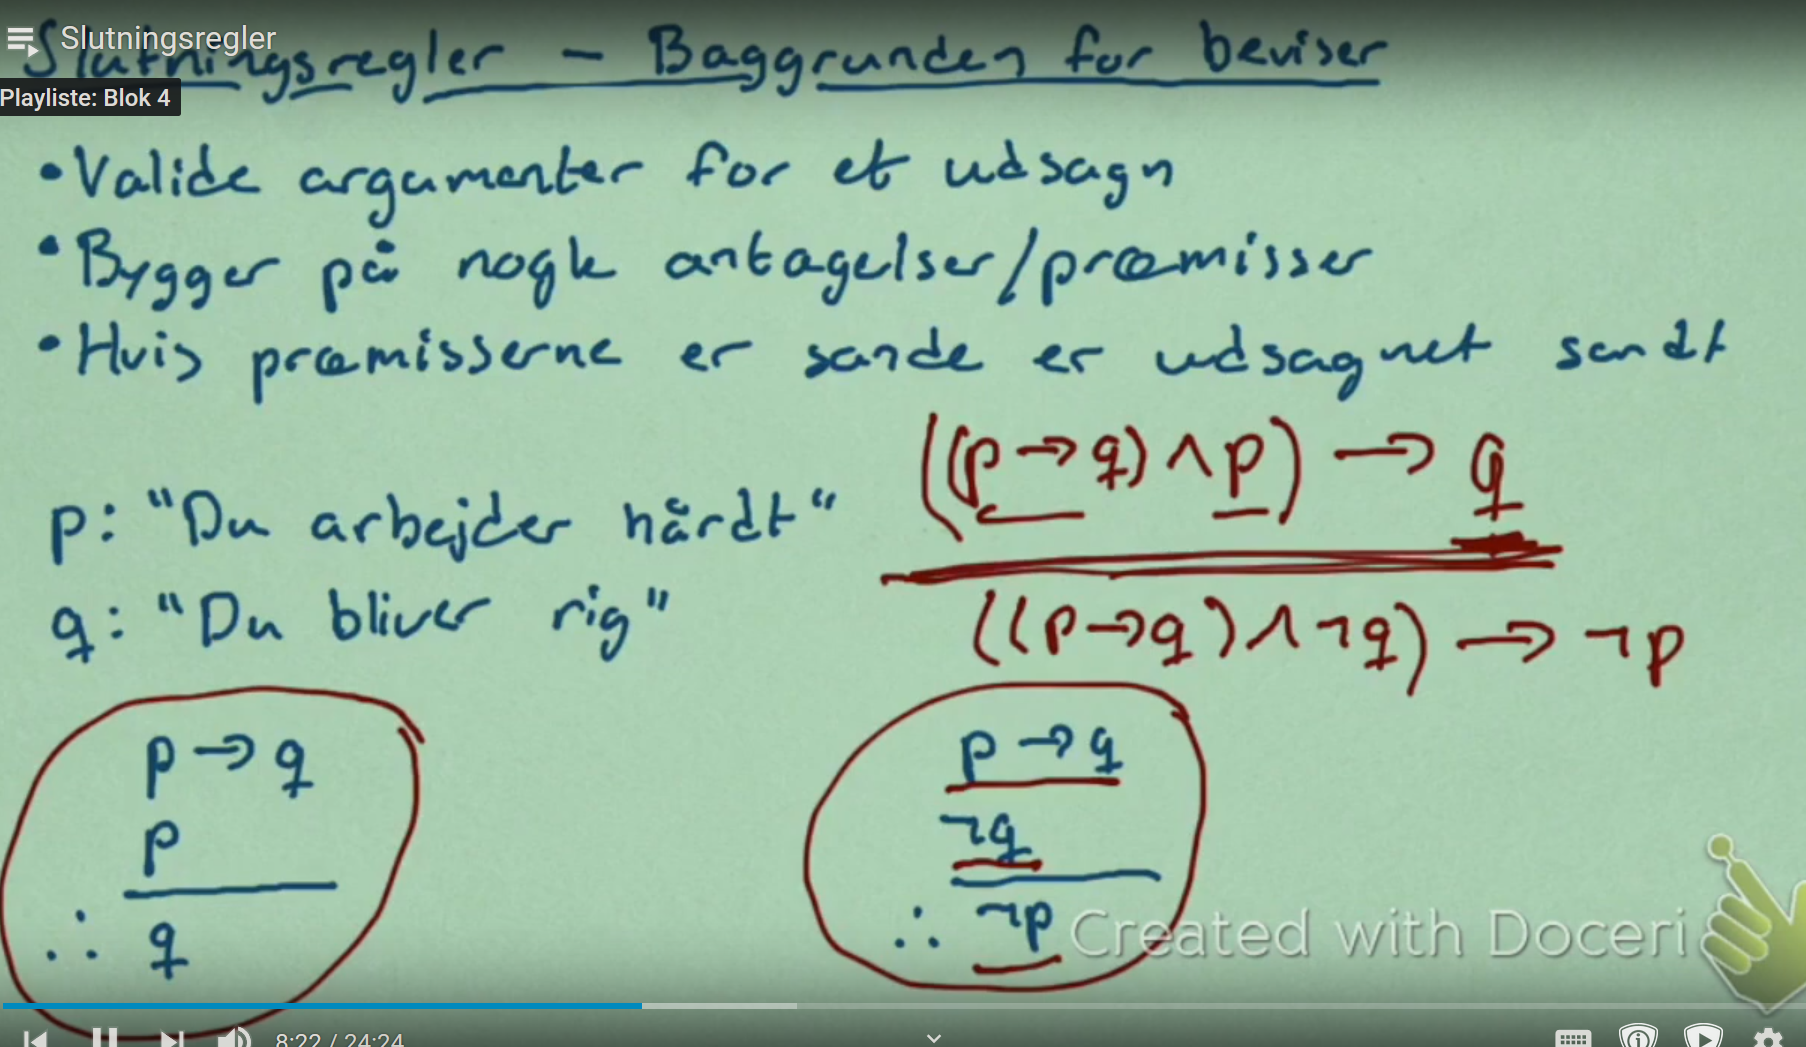 Slutningsregler
Slutningsregler – Baggrunden for beviser
Playliste: Blok 4
• Valide argumenter for et udsagn
• Bygger på nogle antagelser/præmisser
• Hvis præmisserne er sande er udsagnet sandt
((p → q) ∧ p) → q
p: "Du arbejder hårdt"
((p → q) ∧ ¬q) → ¬p
q: "Du bliver rig"
p → q
p
∴ q
p → q
¬q
∴ ¬p
Created with Doceri
8:22 / 24:24